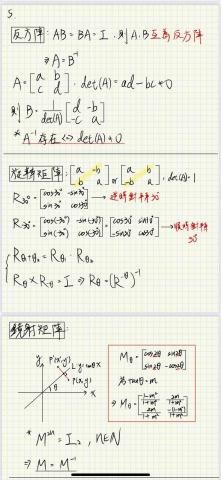 5.
反方陣: AB = BA = I. 則 A.B 互為反方陣
⇒ A = B⁻¹
A = [a b; c d] . det(A) = ad - bc ≠ 0
則 B = 1/det(A) [d -b; -c a]
* A⁻¹ 存在 <-> det(A) ≠ 0
旋轉矩陣: [a -b; b a] or [a b; -b a] , det(A) = 1
R30° = [cos30° -sin30°; sin30° cos30°] → 逆時針轉30°
R-30° = [cos(-30°) -sin(-30°); sin(-30°) cos(-30°)] = [cos30° sin30°; -sin30° cos30°] → 順時針轉30°
Rθ1+θ2 = Rθ1 · Rθ2
Rθ × R-θ = I ⇒ Rθ = (R-θ)⁻¹
鏡射矩陣:
y P'(x',y') L: y = mx
P(x,y)
θ x
Mθ = [cos2θ sin2θ; sin2θ -cos2θ]
若 tanθ = m
⇒ Mθ = [1-m²/1+m² 2m/1+m²; 2m/1+m² -(1-m²)/1+m²]
* M²ⁿ = I₂ , n∈N
⇒ M = M⁻¹